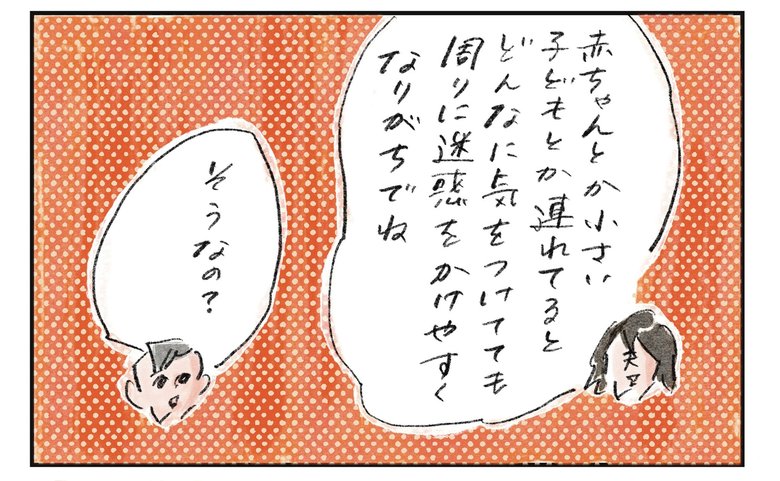 赤ちゃんとか小さい
子どもとか連れてると
どんなに気をつけてても
周りに迷惑をかけやすく
なりがちでね
そうなの?